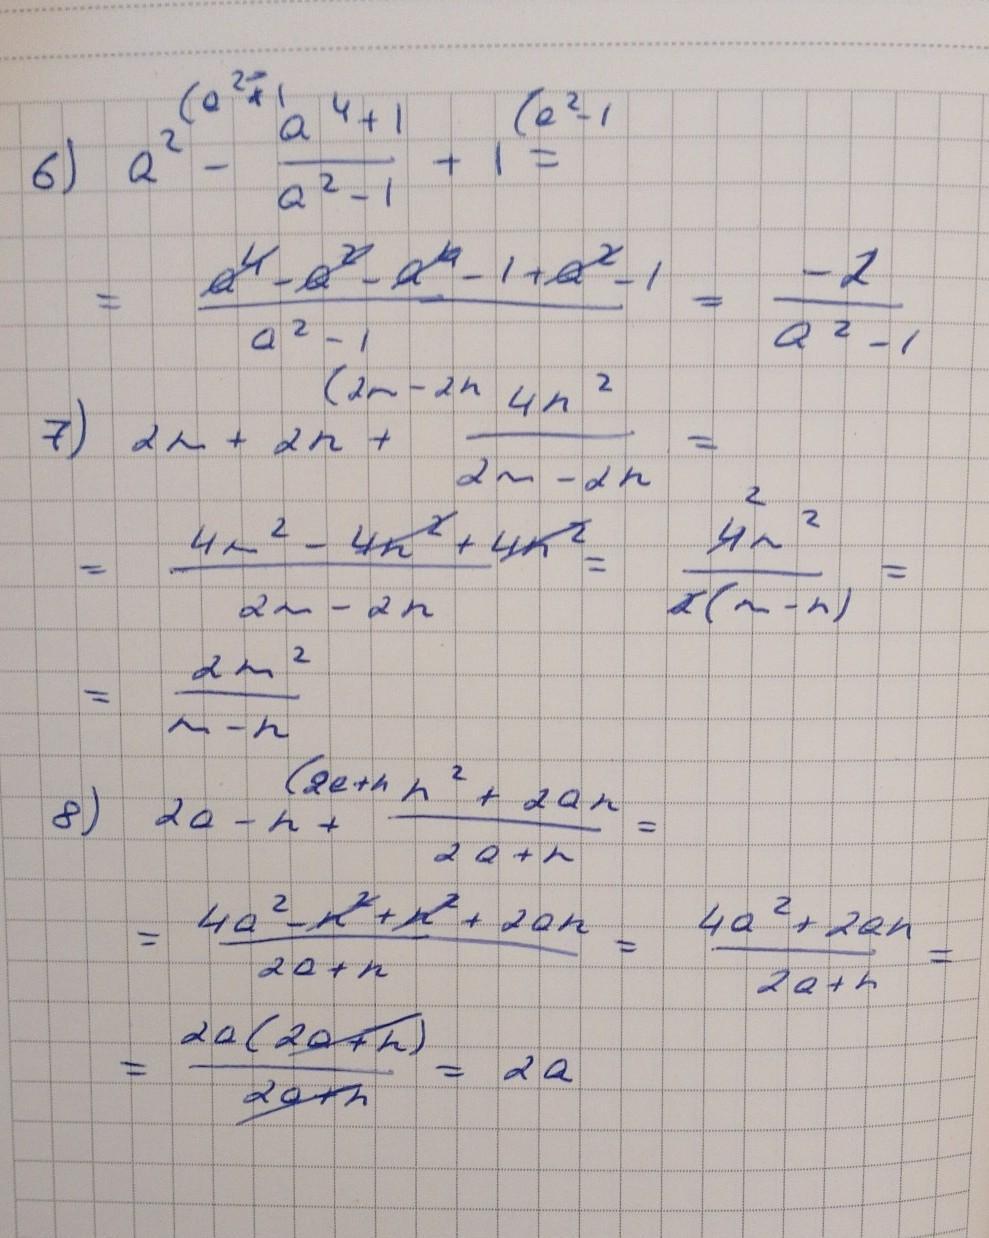 6) a² - (a²-1 (a⁴+1)/(a²-1) + 1 (a²-1 =
= (a⁴ - a² - a⁴ - 1 + a² - 1)/(a² - 1) = (-2)/(a² - 1)
7) 2m + 2n + (2m-2n (4n²)/(2m - 2n) =
= (4m² - 4n² + 4n²)/(2m - 2n) = (4m²)/(2(m - n)) 2 =
= (2m²)/(m - n)
8) 2a - n + (2a+n (n² + 2an)/(2a + n) =
= (4a² - n² + n² + 2an)/(2a + n) = (4a² + 2an)/(2a + n) =
= (2a(2a+n))/(2a+n) = 2a